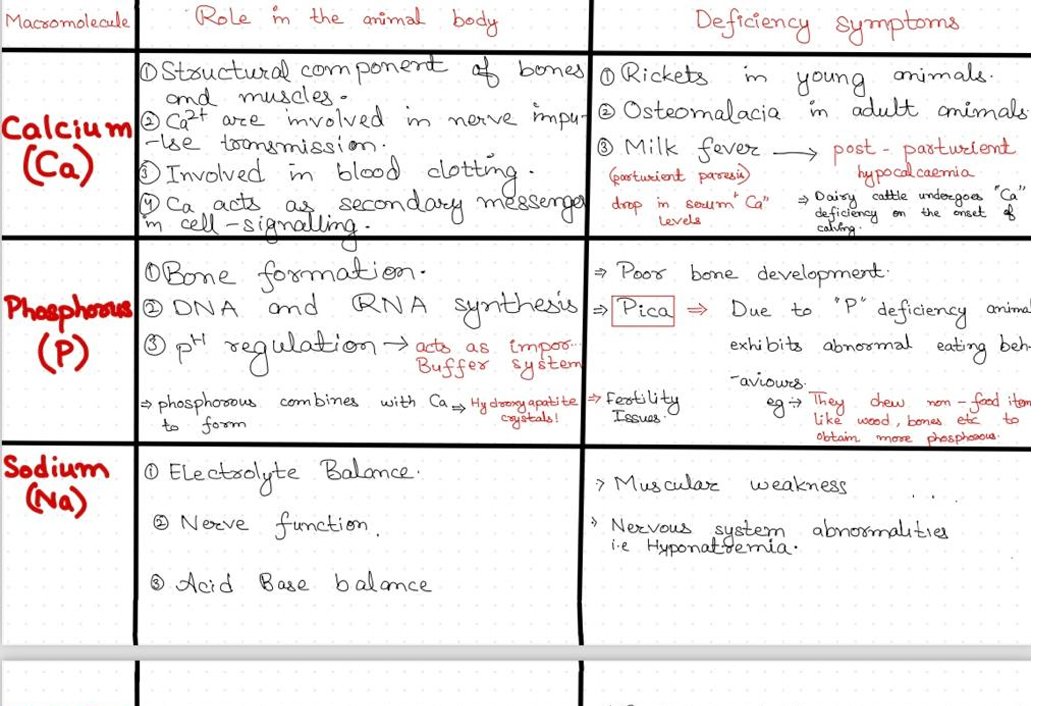 Macromolecule Role in the animal body Deficiency symptoms
Calcium
(Ca)
① Structural component of bones
and muscles.
② Ca²⁺ are involved in nerve impu-
-lse transmission.
③ Involved in blood clotting.
④ Ca acts as secondary messenger
in cell-signalling.
① Rickets in young animals.
② Osteomalacia in adult animals
③ Milk fever → post-parturient
(parturient paresis) hypocalcaemia
drop in serum "Ca"
levels
⇒ Dairy cattle undergoes "Ca"
deficiency on the onset of
calving.
Phosphorous
(P)
① Bone formation.
② DNA and RNA synthesis
③ pH regulation → acts as impor..
Buffer system
⇒ phosphorous combines with Ca ⇒ Hydroxyapatite
to form crystals!
⇒ Poor bone development.
⇒ Pica ⇒ Due to "P" deficiency anima
exhibits abnormal eating beh-
-aviours.
eg → They chew non-food item
like wood, bones etc to
obtain more phosphorous.
⇒ Fertility
Issues.
Sodium
(Na)
① Electrolyte Balance.
② Nerve function.
③ Acid Base balance
> Muscular weakness ...
> Nervous system abnormalities
i.e Hyponatremia.